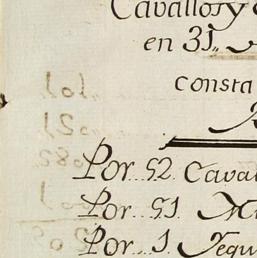 Cavallos y
en 31,,
consta
Por 52 Caval
Por 51 Mu
Por 1 Yegu